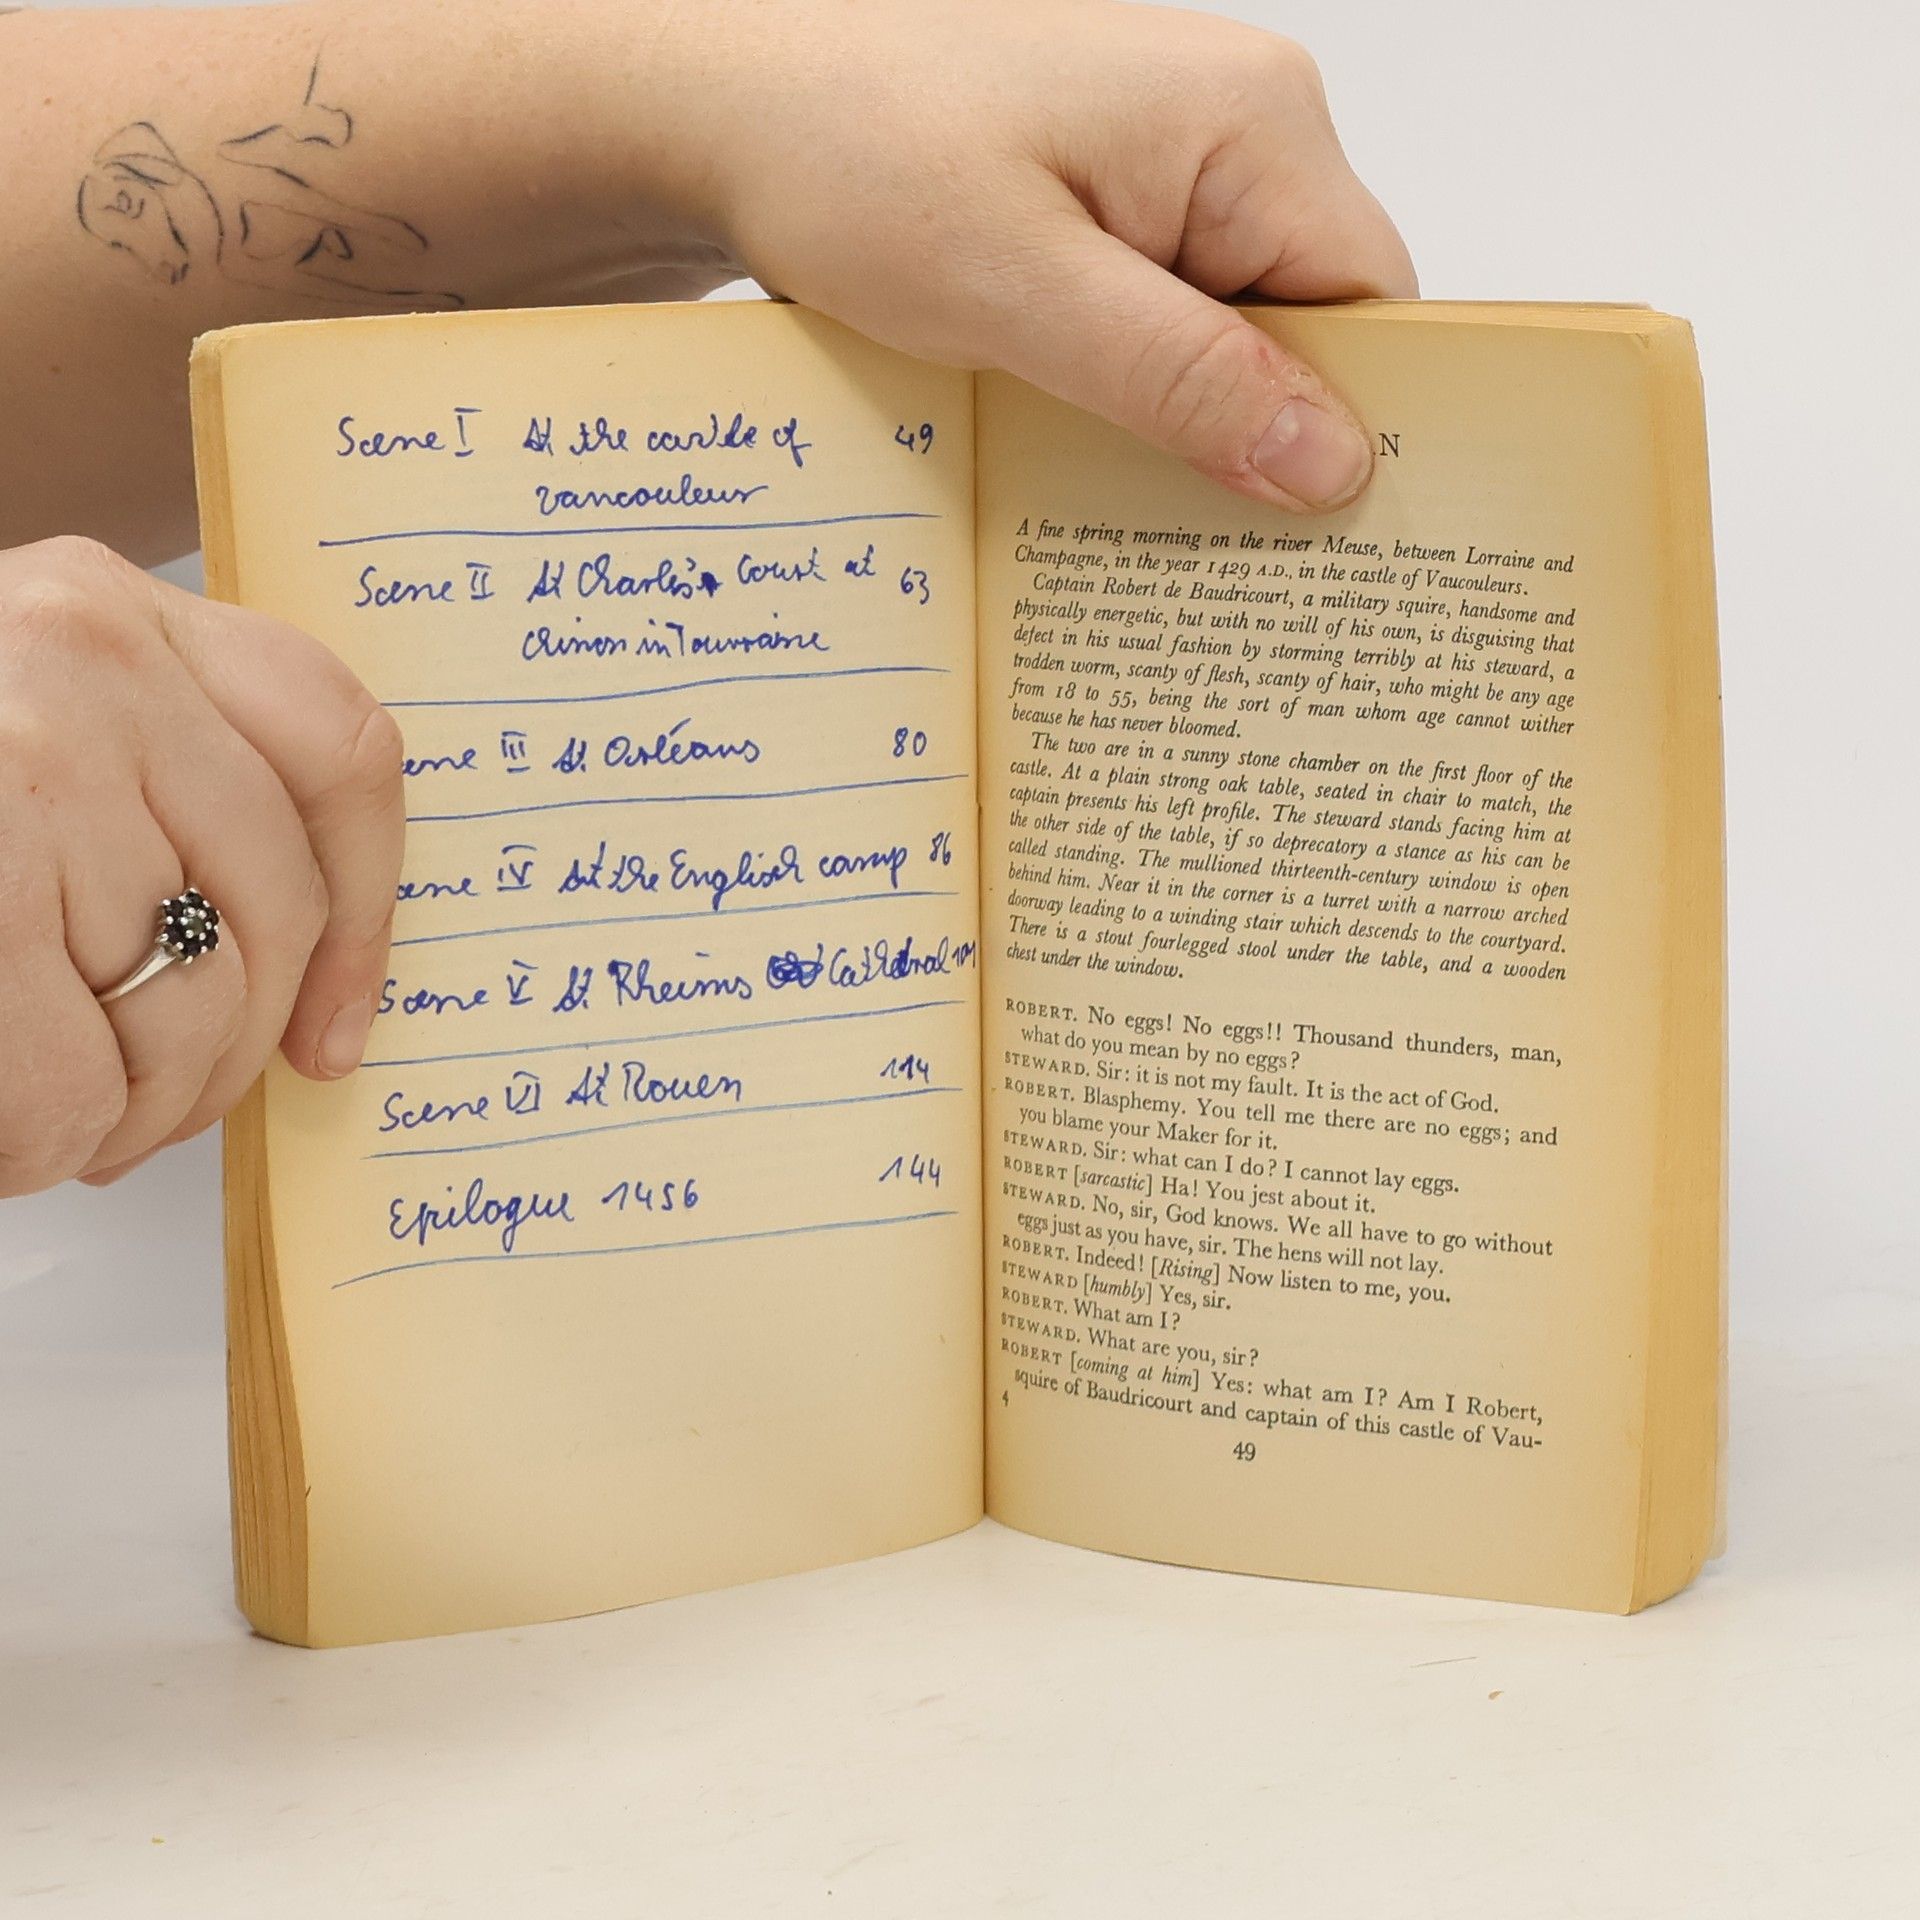 Scene I At the castle of 49
Vancouleur
Scene II At Charles's Court at 63
Chinon in Tourraine
ene III At Orléans 80
ene IV At the English camp 86
Scene V At Rheims Cathedral
Scene VI At Rouen 114
Epilogue 1456 144
N
A fine spring morning on the river Meuse, between Lorraine and
Champagne, in the year 1429 A.D., in the castle of Vaucouleurs.
Captain Robert de Baudricourt, a military squire, handsome and
physically energetic, but with no will of his own, is disguising that
defect in his usual fashion by storming terribly at his steward, a
trodden worm, scanty of flesh, scanty of hair, who might be any age
from 18 to 55, being the sort of man whom age cannot wither
because he has never bloomed.
The two are in a sunny stone chamber on the first floor of the
castle. At a plain strong oak table, seated in chair to match, the
captain presents his left profile. The steward stands facing him at
the other side of the table, if so deprecatory a stance as his can be
called standing. The mullioned thirteenth-century window is open
behind him. Near it in the corner is a turret with a narrow arched
doorway leading to a winding stair which descends to the courtyard.
There is a stout fourlegged stool under the table, and a wooden
chest under the window.
ROBERT. No eggs! No eggs!! Thousand thunders, man,
what do you mean by no eggs?
STEWARD. Sir: it is not my fault. It is the act of God.
ROBERT. Blasphemy. You tell me there are no eggs; and
you blame your Maker for it.
STEWARD. Sir: what can I do? I cannot lay eggs.
ROBERT [sarcastic] Ha! You jest about it.
STEWARD. No, sir, God knows. We all have to go without
eggs just as you have, sir. The hens will not lay.
ROBERT. Indeed! [Rising] Now listen to me, you.
STEWARD [humbly] Yes, sir.
ROBERT. What am I?
STEWARD. What are you, sir?
ROBERT [coming at him] Yes: what am I? Am I Robert,
squire of Baudricourt and captain of this castle of Vau-
4
49